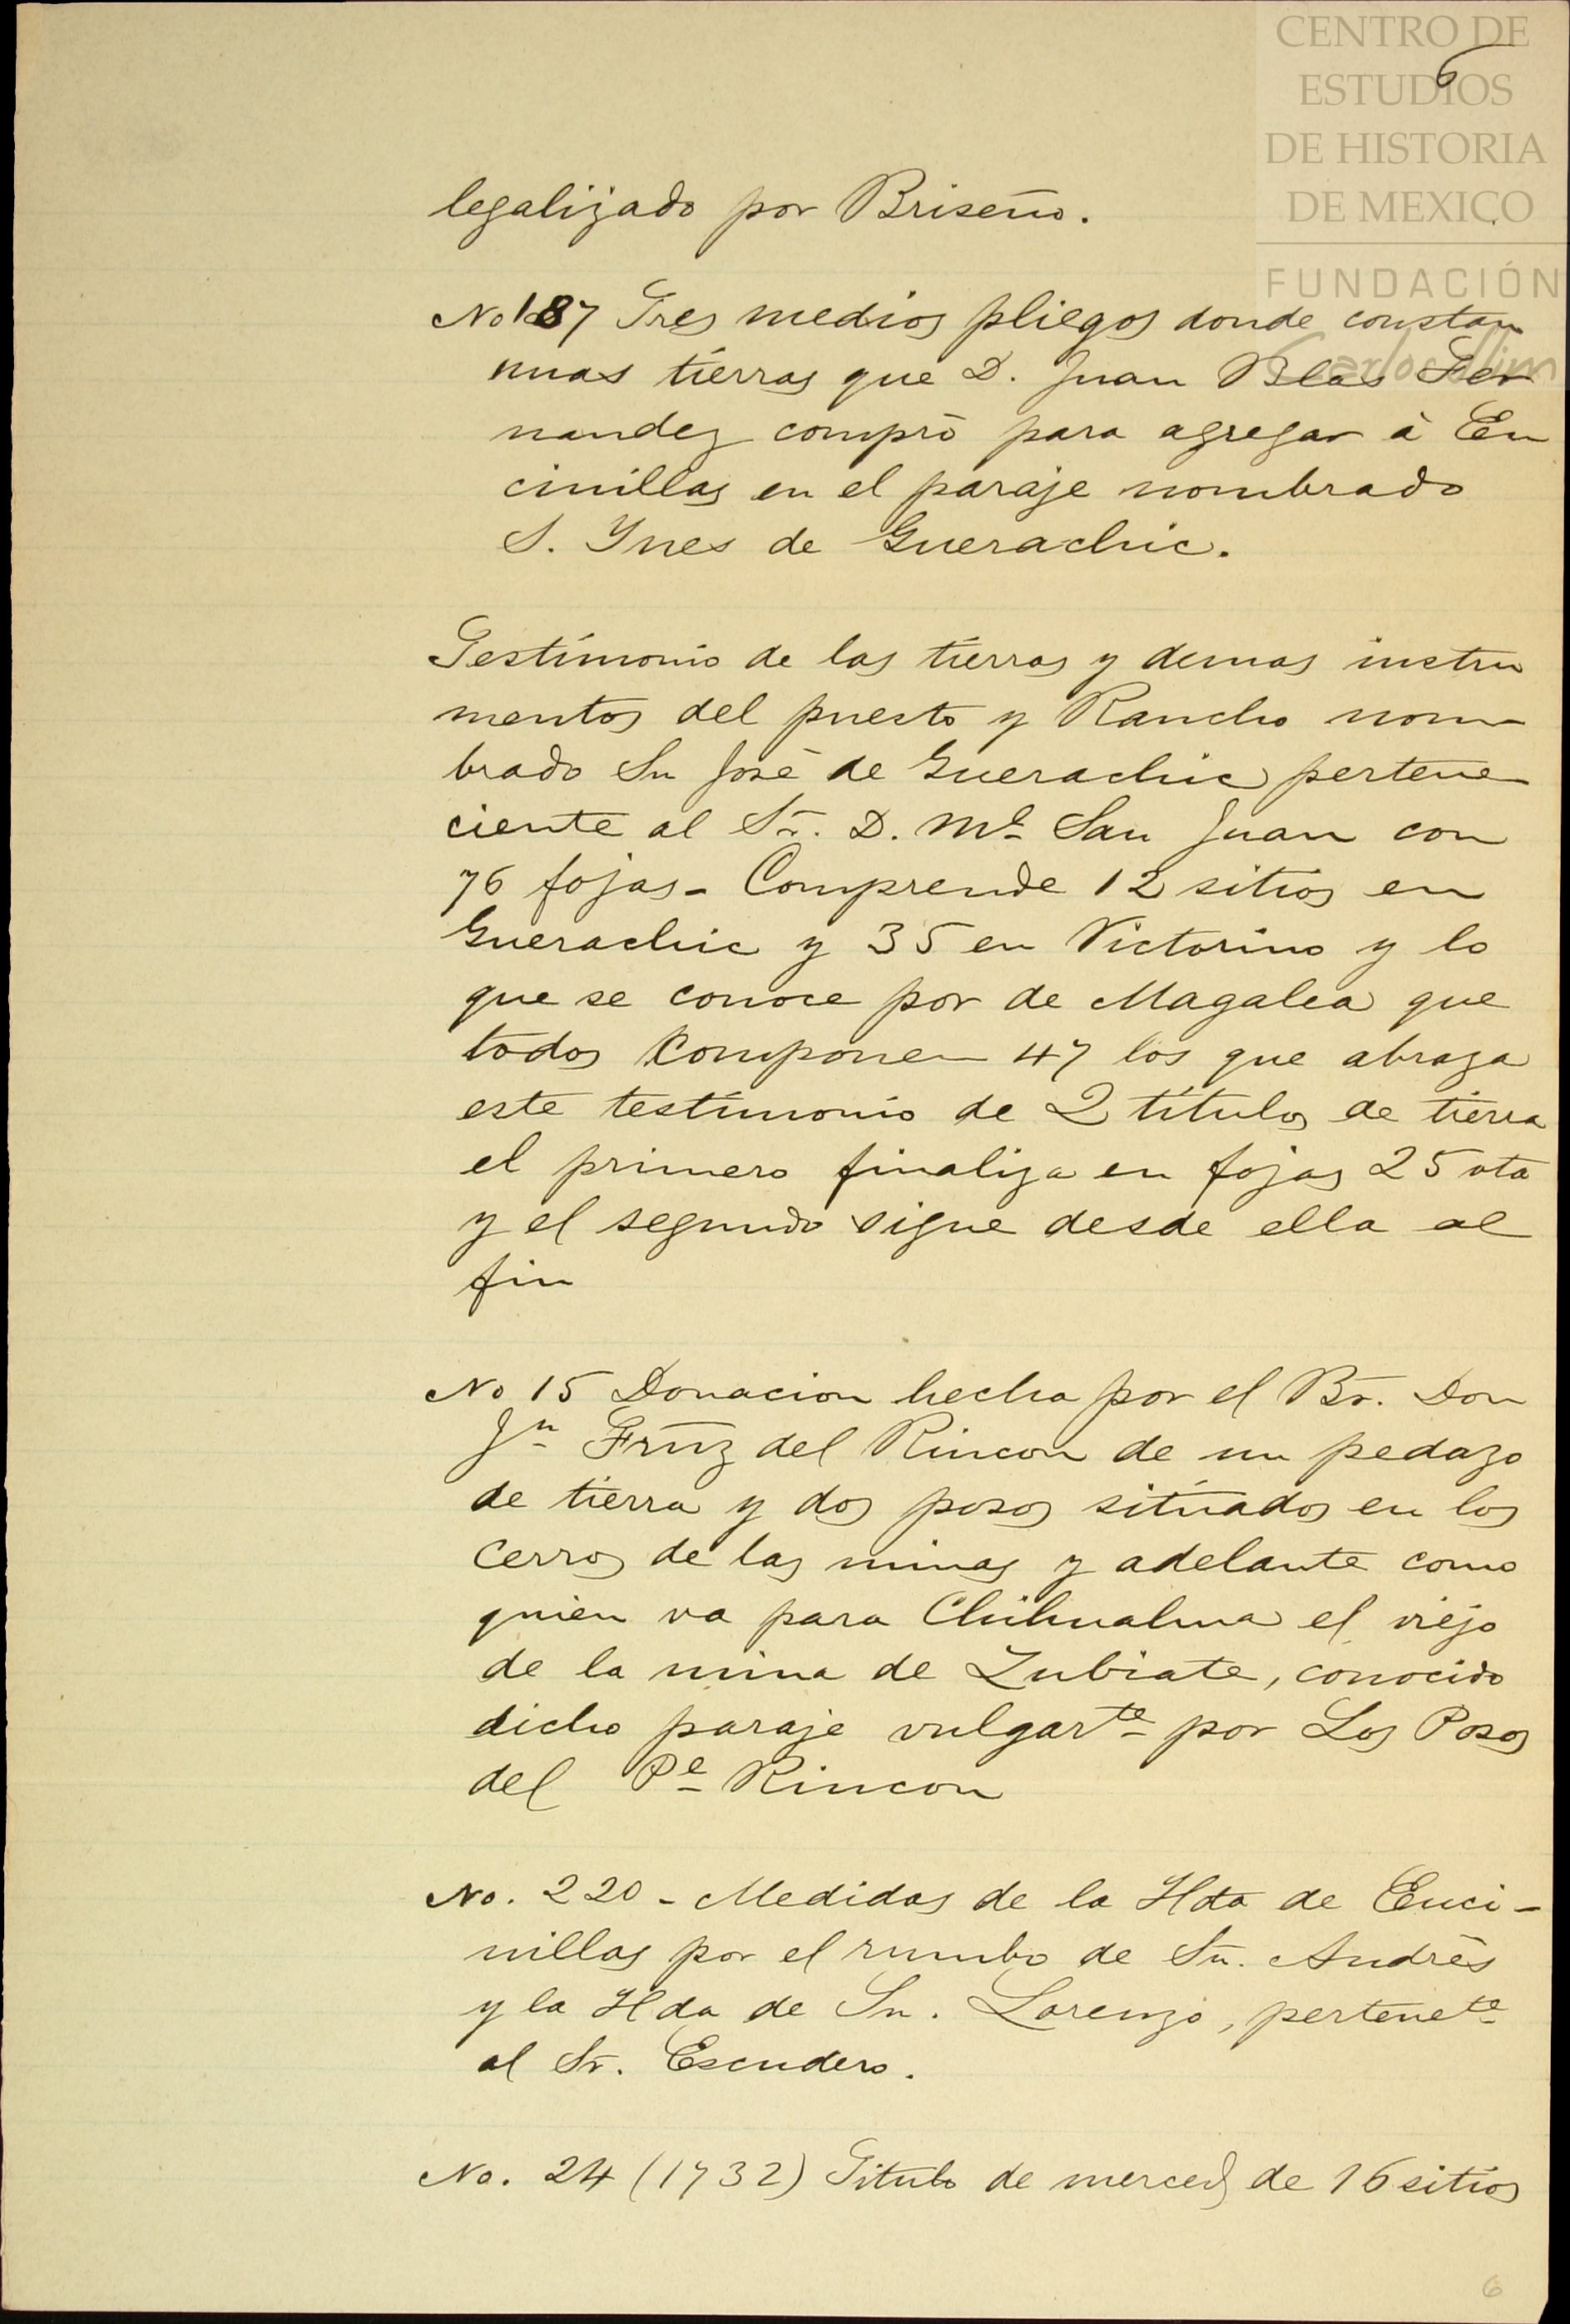 CENTRO DE
ESTUDIOS
DE HISTORIA
DE MEXICO
FUNDACIÓN
Carlos Slim
6
legalizado por Briseño.
No 187 Tres medios pliegos donde constan
unas tierras que D. Juan Blas Fer
nandez compró para agregar á En
cinillas en el paraje nombrado
S. Ynes de Guerachic.
Testimonio de las tierras y demas instru
mentos del puesto y Rancho nom-
brado Sn José de Guerachic pertene-
ciente al Sr. D. Ml San Juan con
76 fojas - Comprende 12 sitios en
Guerachic y 35 en Victorino y lo
que se conoce por de Magalea que
todos componen 47 los que abraza
este testimonio de 2 titulos de tierra
el primero finaliza en fojas 25 vta
y el segundo sigue desde ella al
fin
No 15 Donacion hecha por el Br. Don
Jn Frnz del Rincon de un pedazo
de tierra y dos posos situados en los
cerros de las minas y adelante como
quien va para Chihuahua el viejo
de la mina de Zubiate, conocido
dicho paraje vulgarte por Los Posos
del Pe Rincon
No. 220 - Medidas de la Hda de Enci-
nillas por el rumbo de Sn. Andrés
y la Hda de Sn. Lorenzo, pertenete
al Sr. Escudero.
No. 24 (1732) Titulo de merced de 16 sitios
6